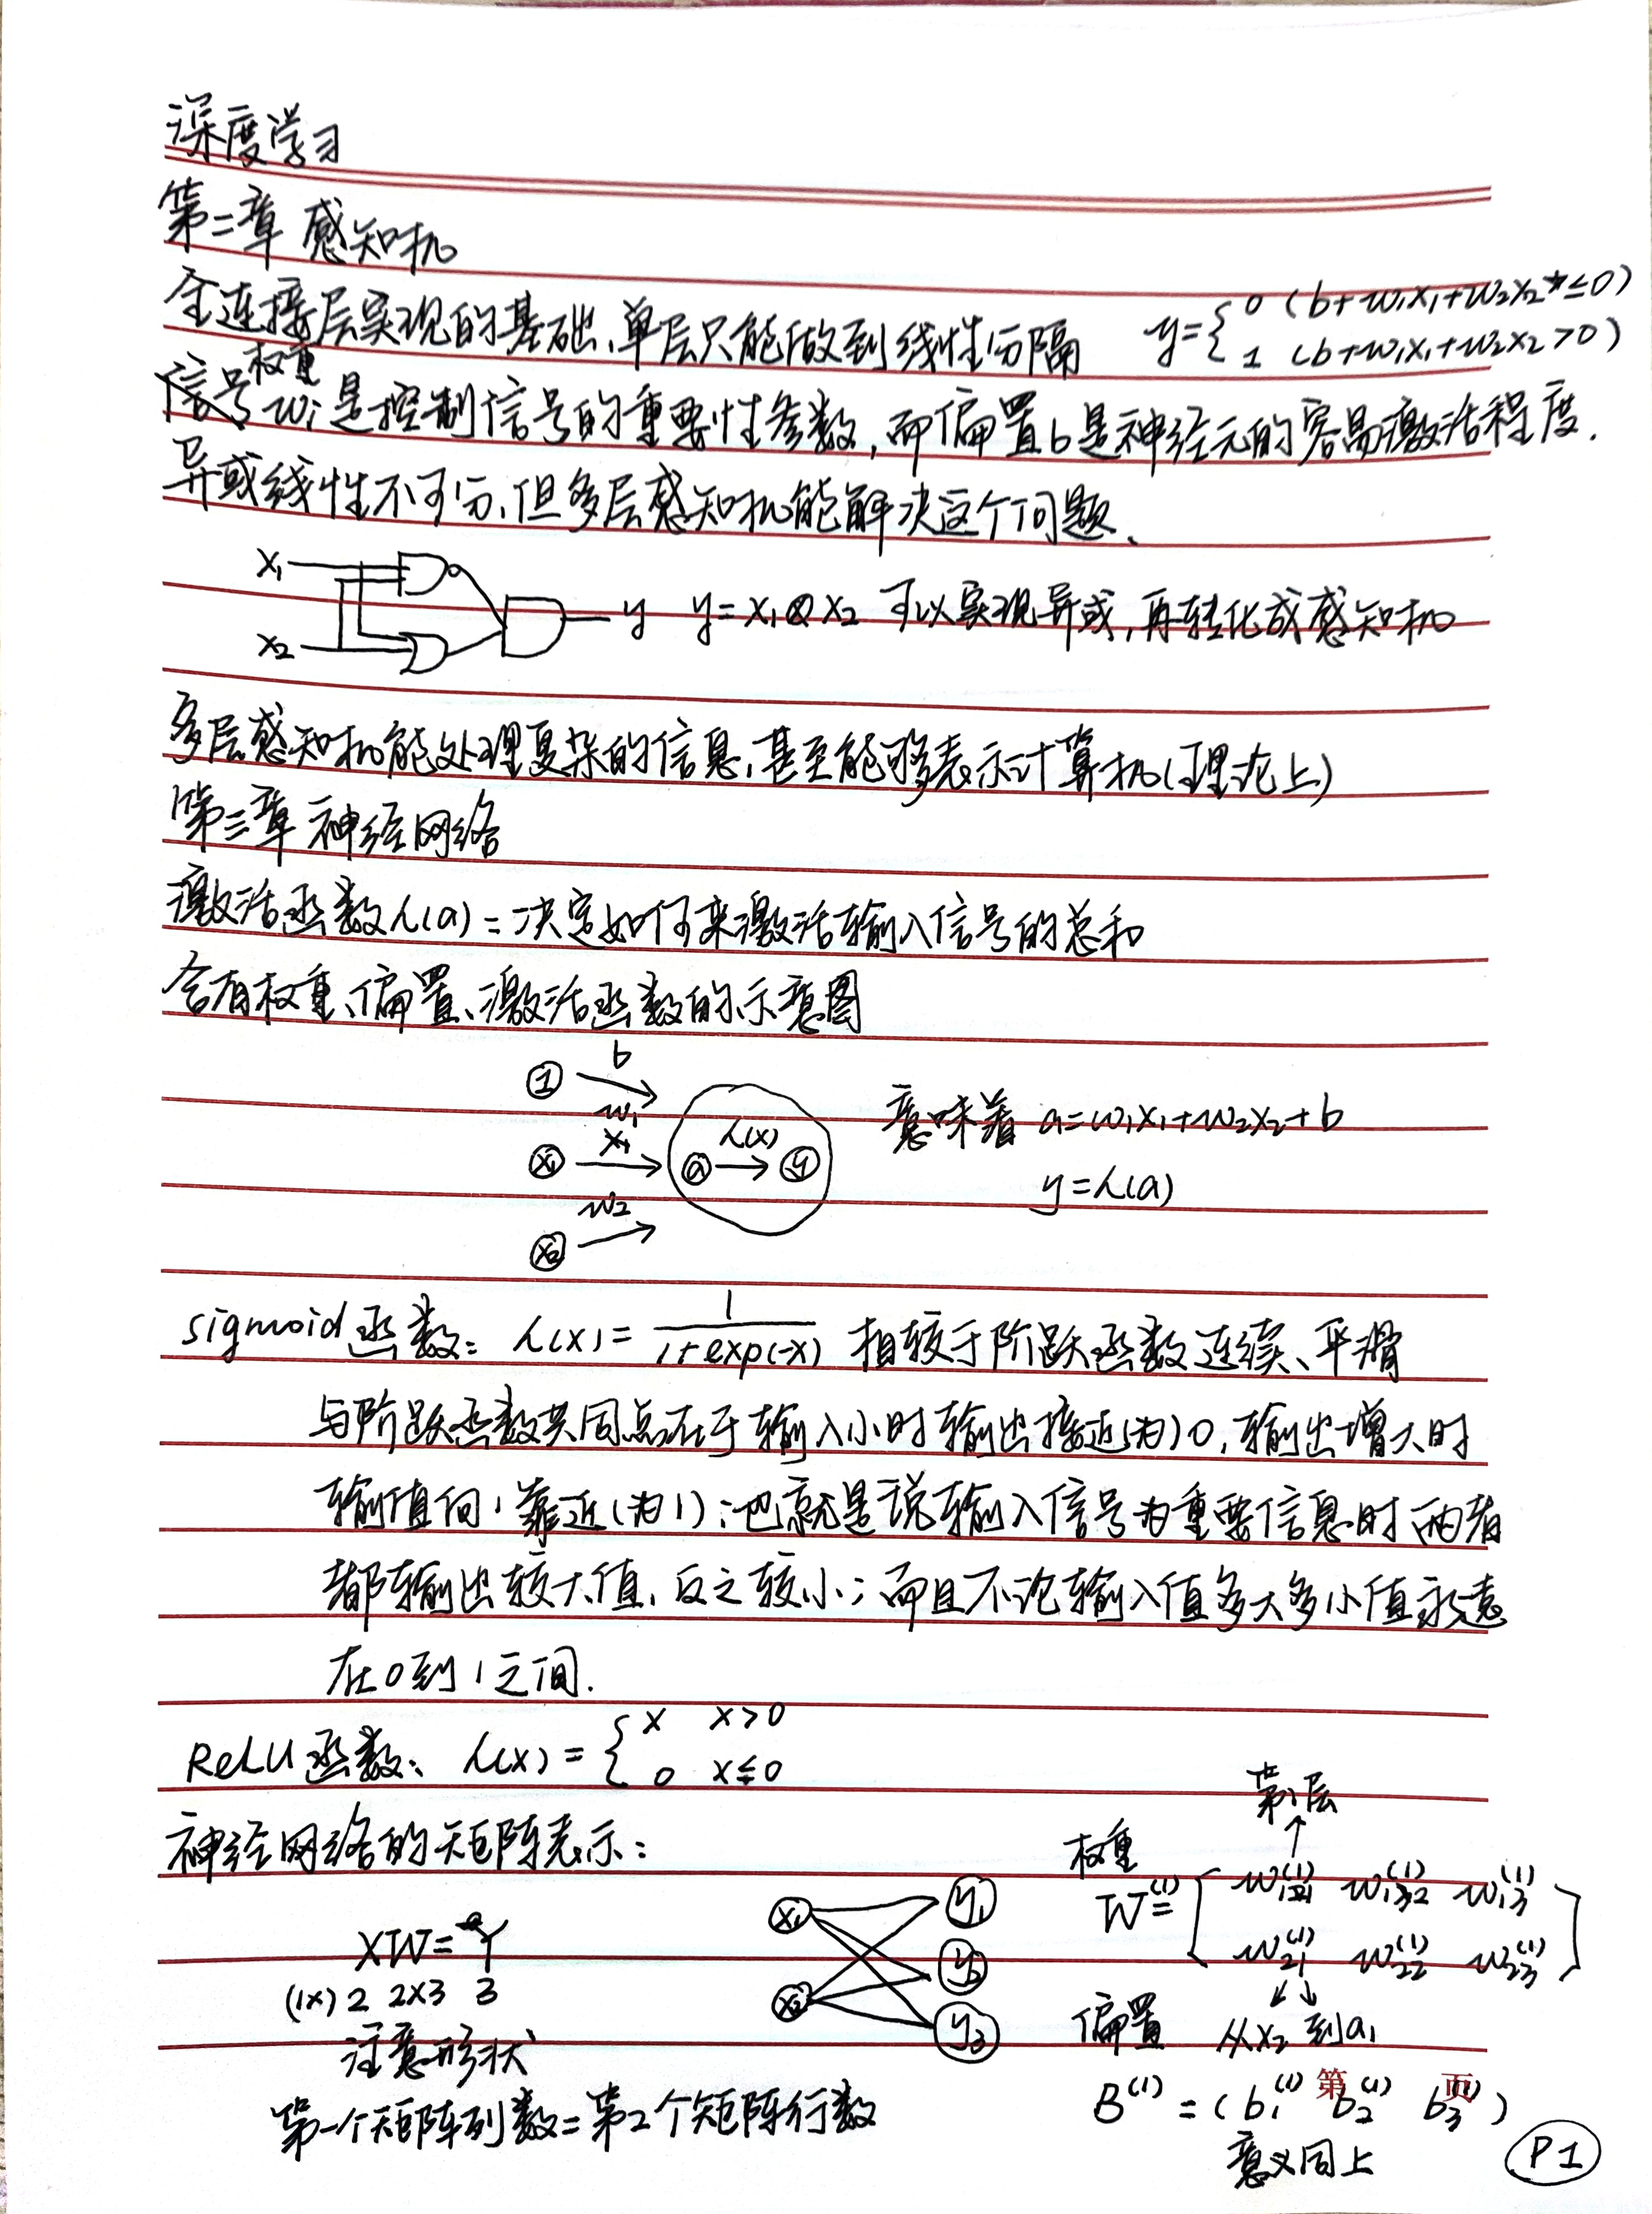 深度学习
第二章 感知机
全连接层实现的基础、单层只能做到线性分隔 y={0 (b+w₁x₁+w₂x₂≤0)
1 (b+w₁x₁+w₂x₂>0)
权重
信号wᵢ是控制信号的重要性参数,而偏置b是神经元的容易激活程度.
异或线性不可分,但多层感知机能解决这个问题、
x₁
y y=x₁⊗x₂ 可以实现异或,再转化成感知机
x₂
多层感知机能处理复杂的信息,甚至能够表示计算机(理论上)
第三章 神经网络
激活函数h(a)=决定如何来激活输入信号的总和
含有权重、偏置、激活函数的示意图
① b
w₁ 意味着 a=w₁x₁+w₂x₂+b
x₁ x₁ a h(x) y
y=h(a)
w₂
x₂
sigmoid函数: h(x)=1/(1+exp(-x)) 相较于阶跃函数连续、平滑
与阶跃函数共同点在于输入小时输出接近(为)0,输出增大时
输值向1靠近(为1);也就是说输入信号为重要信息时两者
都输出较大值,反之较小;而且不论输入值多大多小值永远
在0到1之间.
ReLU函数: h(x)={x x>0
0 x≤0
第1层
神经网络的矩阵表示: 权重
W⁽¹⁾=[w₁₁⁽¹⁾ w₁₂⁽¹⁾ w₁₃⁽¹⁾
w₂₁⁽¹⁾ w₂₂⁽¹⁾ w₂₃⁽¹⁾]
x₁ y₁
XW=Y y₂
(1×)2 2×3 3 x₂ y₃
偏置 从x₂到a₁
注意形状
第 页
B⁽¹⁾=(b₁⁽¹⁾ b₂⁽¹⁾ b₃⁽¹⁾)
第一个矩阵列数=第2个矩阵行数
意义同上
P1